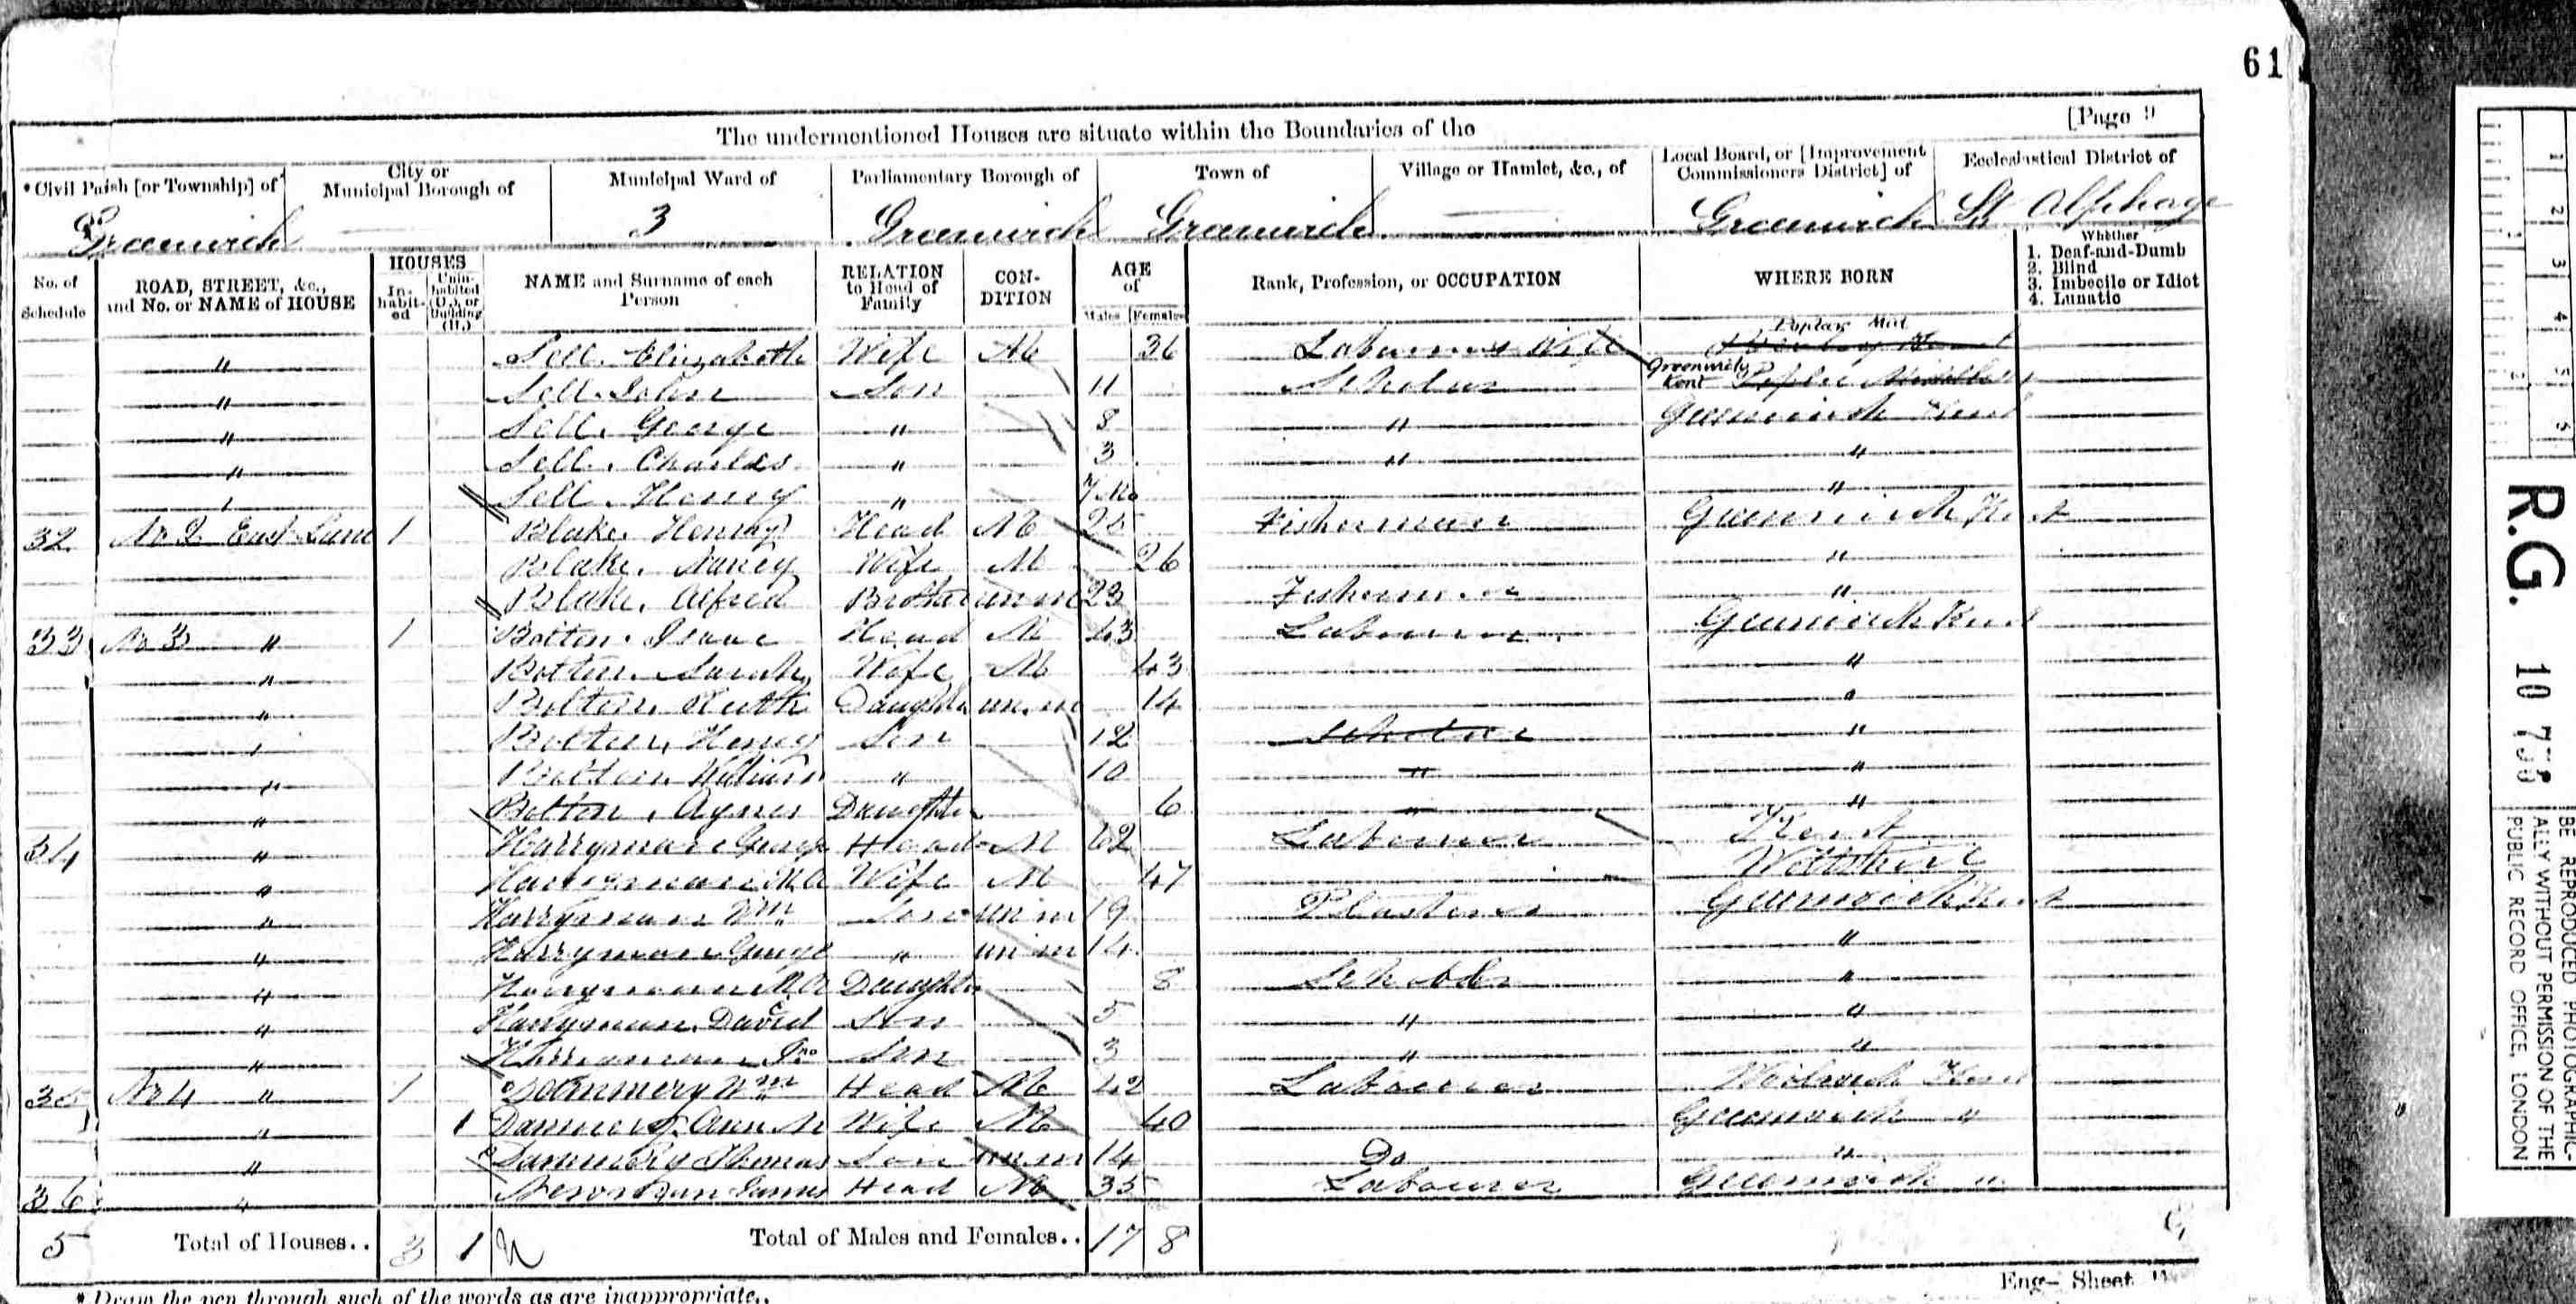 61
[Page 9
The undermentioned Houses are situate within the Boundaries of the
* Civil Parish [or Township] of
City or Municipal Borough of
Municipal Ward of
Parliamentary Borough of
Town of
Village or Hamlet, &c., of
Local Board, or [Improvement Commissioners District] of
Ecclesiastical District of
Greenwich 3 Greenwich Greenwich Greenwich St Alphage
No. of Schedule
ROAD, STREET, &c., and No. or NAME of HOUSE
HOUSES
In-habit-ed
Unin-habited (U.), or Building (B.)
NAME and Surname of each Person
RELATION to Head of Family
CON-DITION
AGE of
Males Females
Rank, Profession, or OCCUPATION
WHERE BORN
Whether
1. Deaf-and-Dumb
2. Blind
3. Imbecile or Idiot
4. Lunatic
Poplar Mid
" Sell. Elizabeth Wife M 36 Labourers Wife
" Sell. John Son 11 Scholar Greenwich Kent
" Sell. George " 8 " Greenwich Kent
" Sell. Charles " 3 " "
" Sell. Henry " 7 Mo "
32 No 2 East Lane 1 Blake. Henry Head M 25 Fisherman Greenwich Kent
Blake. Nancy Wife M 26 "
Blake. Alfred Brother unm 23 Fisherman "
33 No 3 " 1 Botton. Isaac Head M 43 Labourer Greenwich Kent
" Botton. Sarah Wife M 43 "
" Botton. Ruth Daughter unm 14 "
" Botton. Henry Son 12 Scholar "
" Botton. William " 10 " "
" Botton. Agnes Daughter 6 " "
34 " Harryman George Head M 62 Labourer Kent
" Harryman M A Wife M 47 Wiltshire
" Harryman Wm Son unm 19 Plasterer Greenwich Kent
" Harryman George " unm 14 "
" Harryman M A Daughter 8 Scholar "
" Harryman David Son 5 " "
" Harryman Jno Son 3 " "
35 No 4 " 1 Dammery Wm Head M 42 Labourer Woolwich Kent
" 1 Dammery Ann M Wife M 40 Greenwich "
" Dammery Thomas Son unm 14 Do "
36 " James Head M 35 Labourer Greenwich "
5 Total of Houses.. 3 1 Total of Males and Females.. 17 8
Eng- Sheet
* Draw the pen through such of the words as are inappropriate.
R.G. 10
BE REPRODUCED PHOTOGRAPHIC-
ALLY WITHOUT PERMISSION OF THE
PUBLIC RECORD OFFICE, LONDON